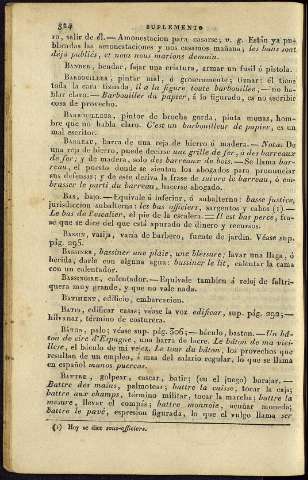 524 SUPLEMENTO
ro, salir de él.— Amonestacion para casarse; v. g. Están ya pu-
blicadas las amonestaciones y nos casamos mañana; les bans sont
déjà publiés, et nous nous marions demain.
BANDER, bendar, fajar una criatura, armar un fusil ó pistola.
BARBOUILLER, pintar mal, ó groseramente; tiznar: él tiene
toda la cara tiznada, il a la figure toute barbouillée, — no ha-
blar claro.— Barbouiller du papier, á lo figurado, es no escribir
cosa de provecho.
BARBOUILLEUR, pintor de brocha gorda, pinta monas, hom-
bre que no habla claro. C'est un barbouilleur de papier, es un
mal escritor.
BARREAU, barra de una reja de hierro ó madera.— Nota: De
una reja de hierro, puede decirse une grille de fer, ó des barreaux
de fer, y de madera, solo des barreaux de bois. — Se llama bar-
reau, el puesto donde se sientan los abogados para pronunciar
sus defensas; y de este deriva la frase de suivre le barreau, ó em-
brasser le parti du barreau, hacerse abogado.
BAS, bajo.— Equivale ó inferior, ó subalterno: basse justice,
jurisdiccion subalterna: les bas officiers, sargentos y cabos (1).—
Le bas de l'escalier, el pie de la escalera.— Il est bas percé, fra-
se que se dice del que está apurado de dinero y recursos.
BASSIN, vasija, vacía de barbero, fuente de jardin. Véase sup.
pág. 295.
BASSINER, bassiner une plaie, une blessure, lavar una llaga, ó
herida, darle con alguna agua: bassiner le lit, calentar la cama
con un calentador.
BASSINOIRE, calentador.— Equivale tambien á reloj de faltri-
quera muy grande, y que no vale nada.
BATIMENT, edificio, embarcacion.
BATIR, edificar casas; véase la voz edificar, sup. pág. 292; —
hilvanar, término de costureras.
BATON, palo; véase sup. pág. 306; — báculo, baston.— Un bâ-
ton de cire d'Espagne, una barra de lacre. Le bâton de ma vieil-
llesse, el báculo de mi vejez. Le tour du bâton, los provechos que
resultan de un empleo, á mas del salario regular, lo que se llama
en español manos puercas.
BATTRE, golpear, cascar, batir; (en el juego) barajar. —
Battre des mains, palmotear; battre la caisse, tocar la caja;
battre aux champs, término militar, tocar la marcha; battre la
mesure, llevar el compás; battre monnoie, acuñar moneda;
Battre le pavé, espresion figurada, lo que el vulgo llama ser
(1) Hoy se dice sous-officiers.